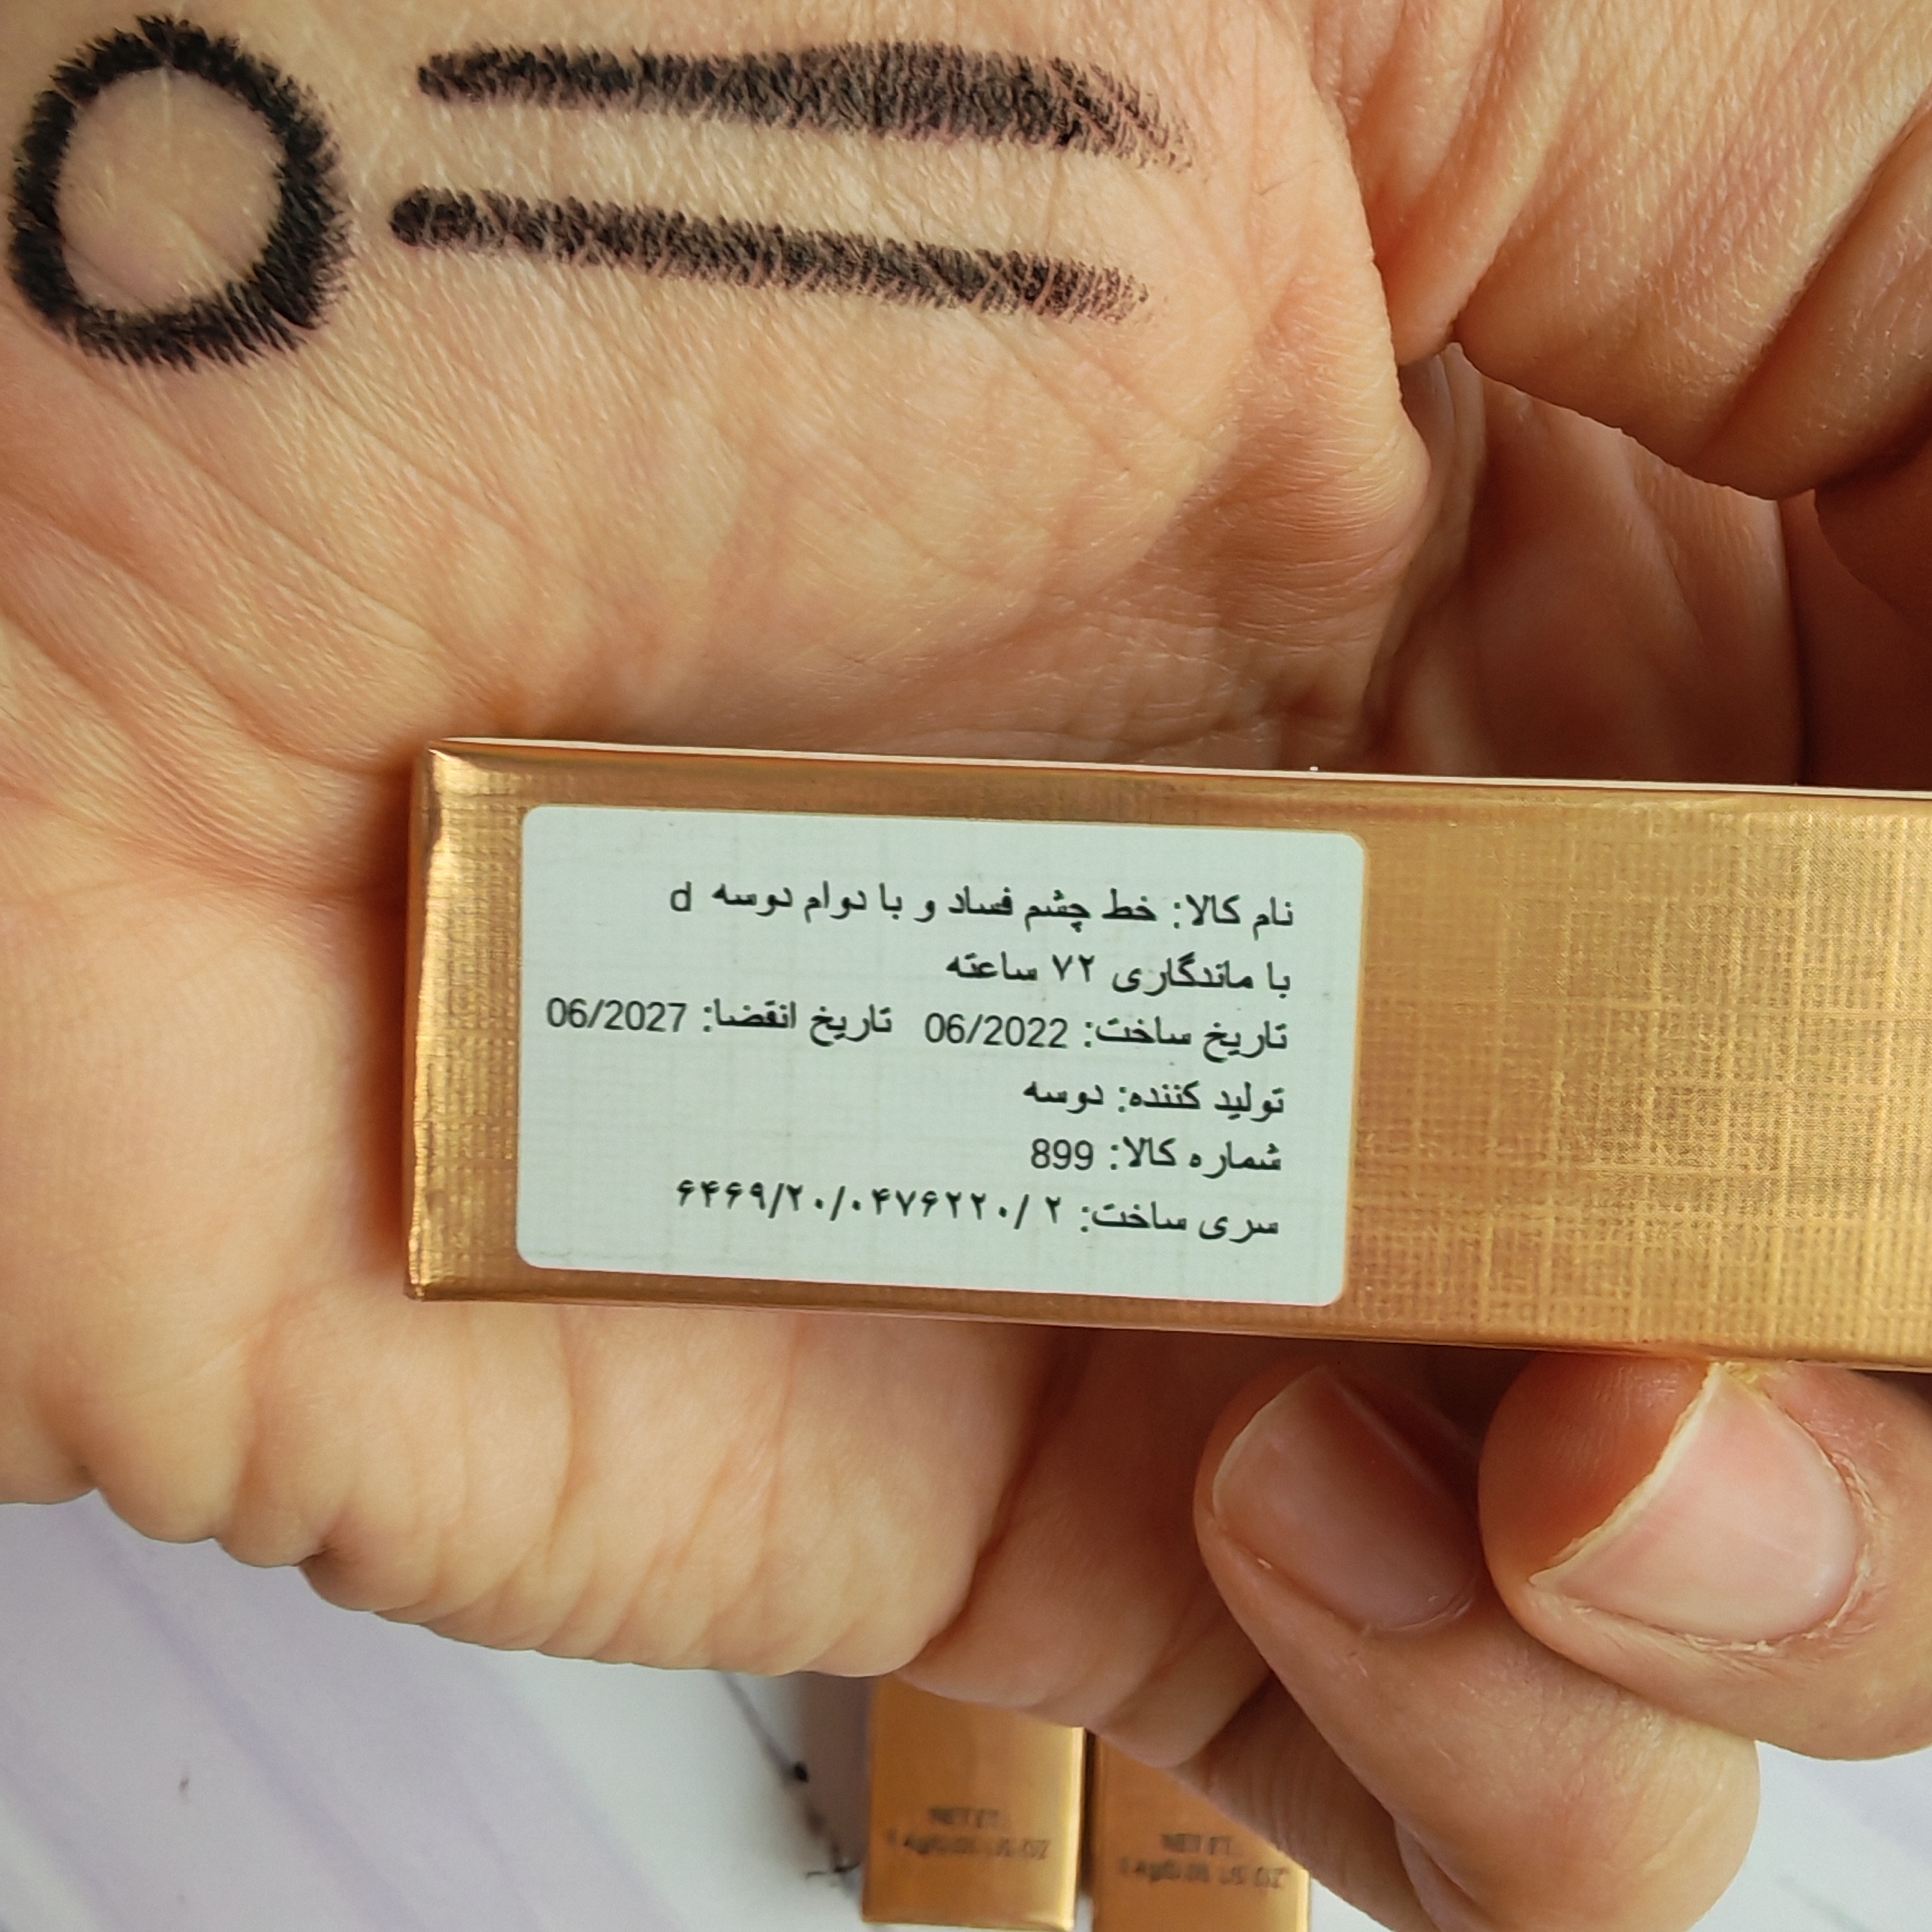 نام کالا: خط چشم فساد و با دوام دوسه d
با ماندگاری ۷۲ ساعته
تاریخ ساخت: 06/2022 تاریخ انقضا: 06/2027
تولید کننده: دوسه
شماره کالا: 899
سری ساخت: ۲ /۶۴۶۹/۲۰/۰۴۷۶۲۲۰